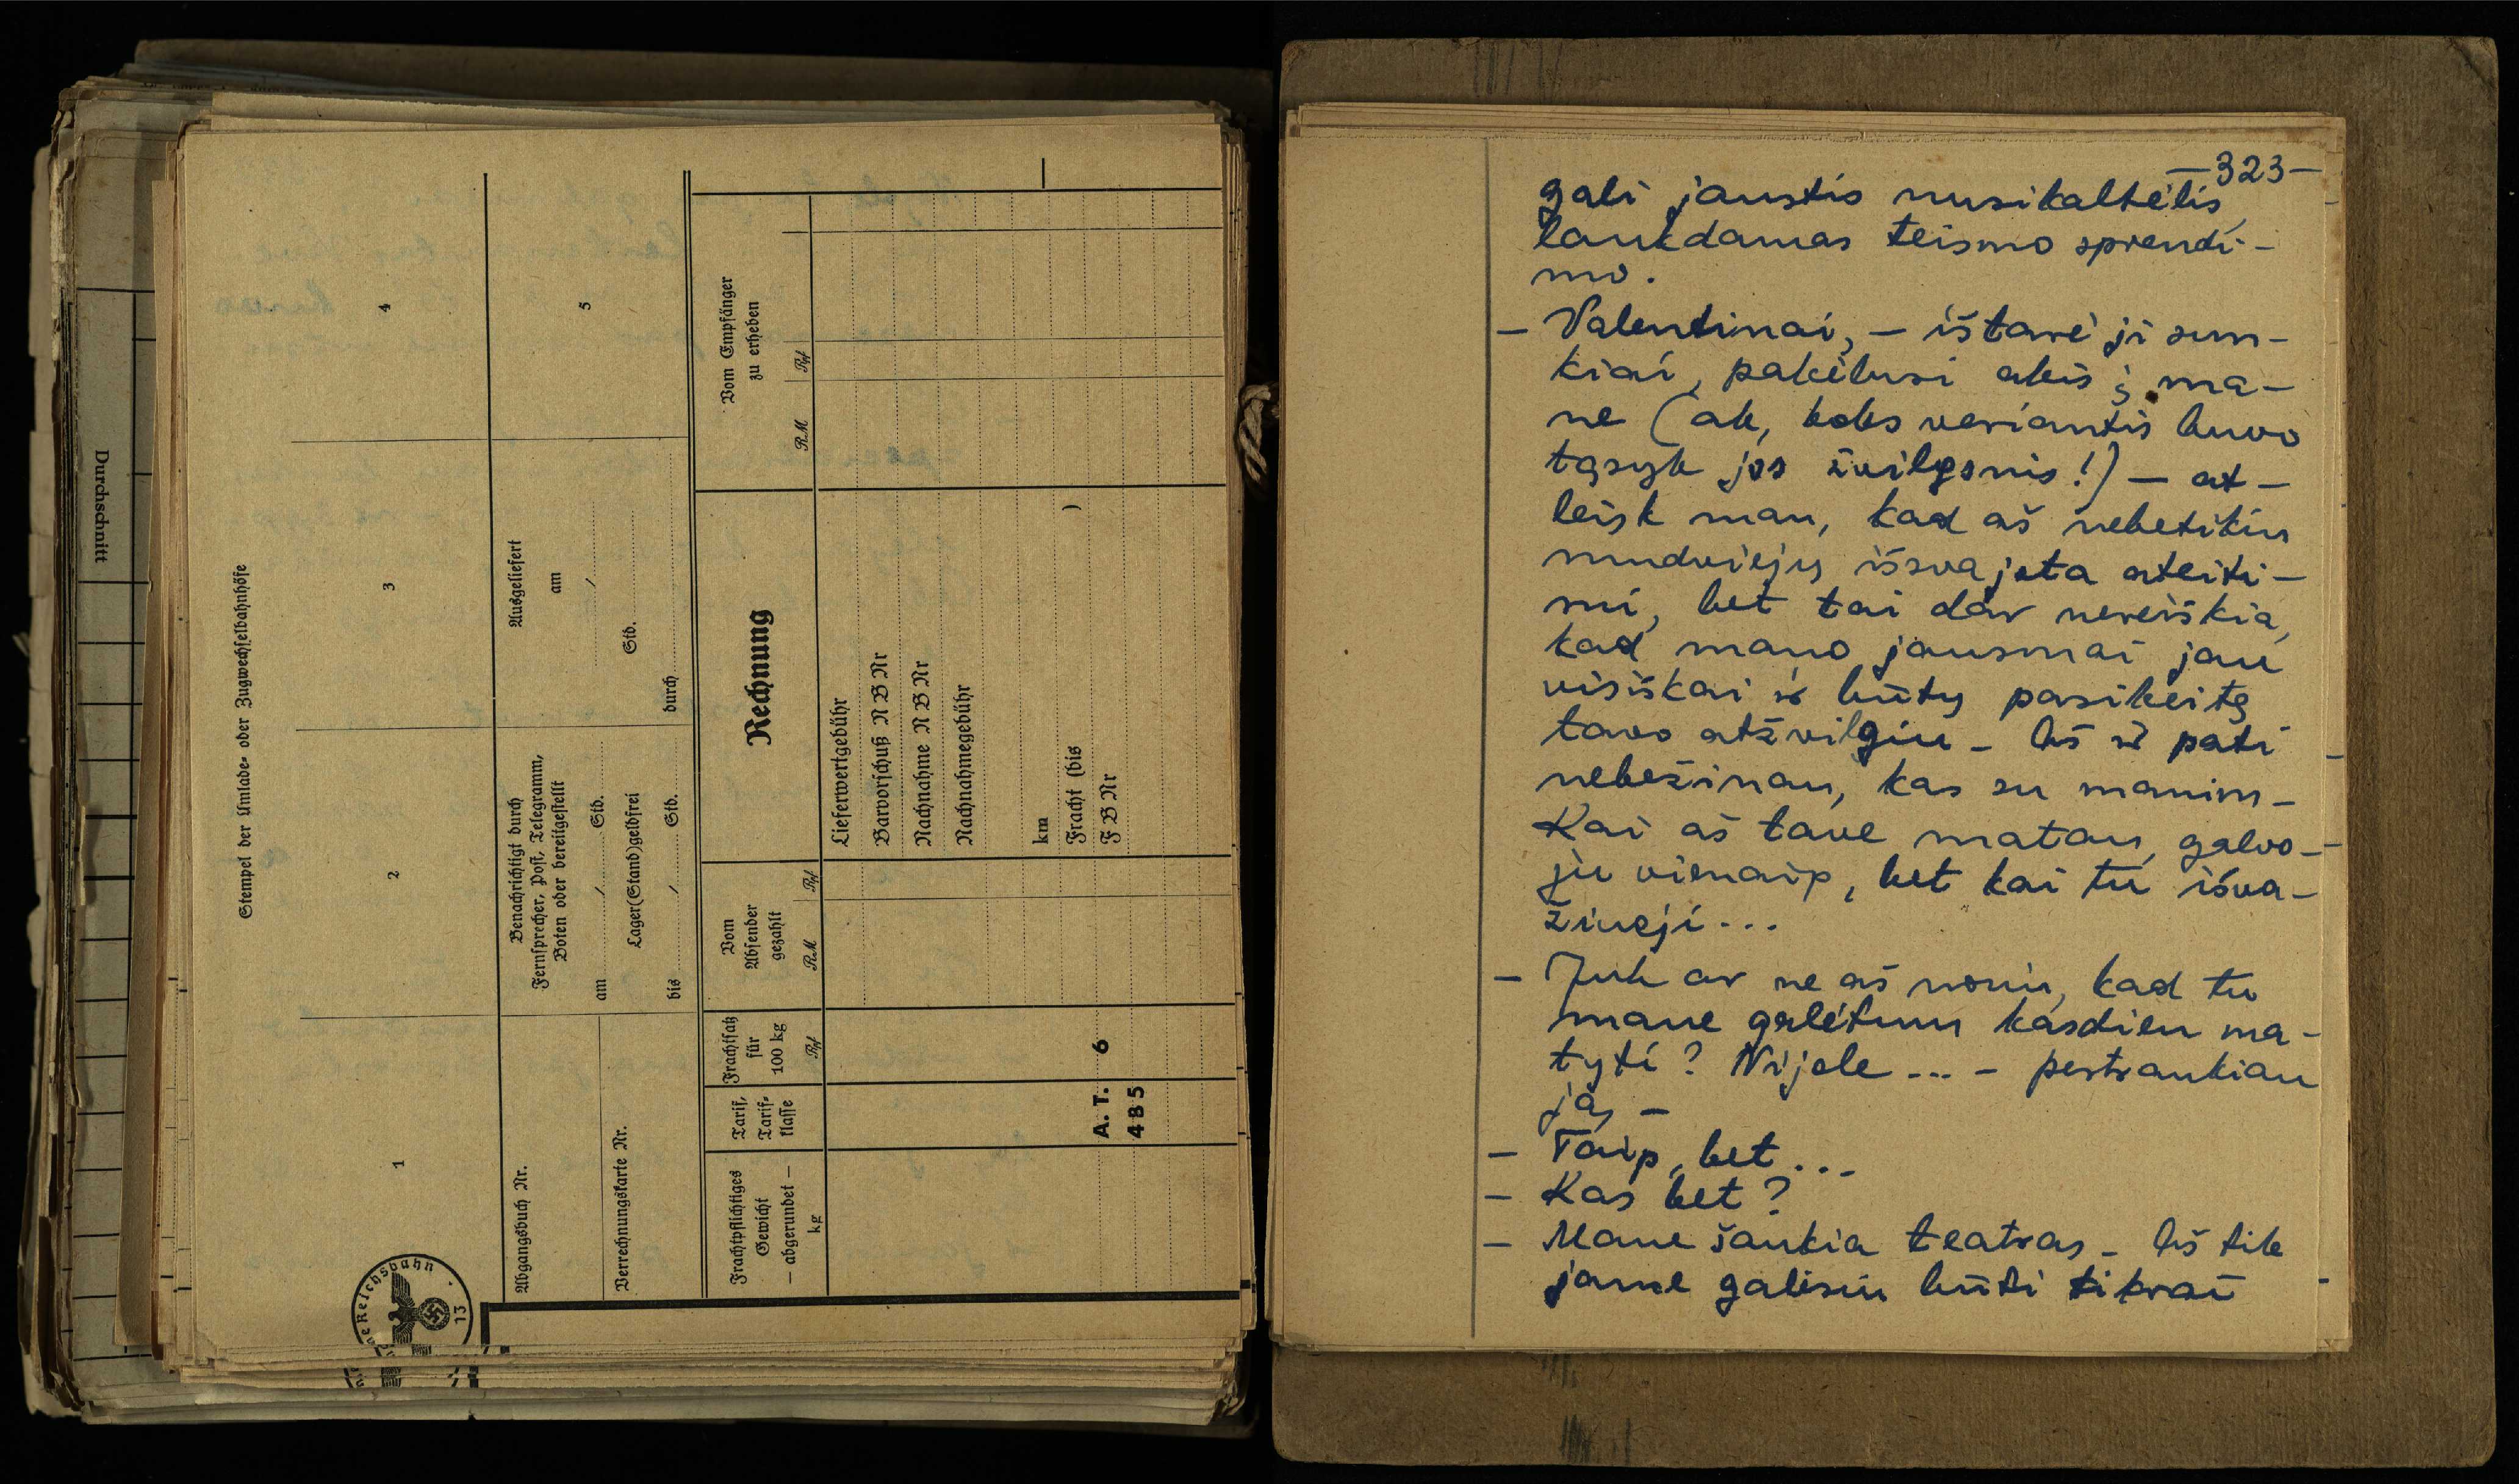 Durchschnitt
Stempel der Umlade- oder Zugwechselbahnhöfe
1
2
3
4
Abgangsbuch Nr.
Verrechnungskarte Nr.
Benachrichtigt durch
Fernsprecher, Post, Telegramm,
Boten oder bereitgestellt
am / Std.
Lager(Stand)geldfrei
bis / Std.
Ausgeliefert
am
/
Std.
durch
5
Frachtpflichtiges
Gewicht
— abgerundet —
kg
Tarif,
Tarif-
klasse
Frachtsatz
für
100 kg
Rpf
Vom
Absender
gezahlt
RM Rpf
Rechnung
Vom Empfänger
zu erheben
RM Rpf
Lieferwertgebühr
Barvorschuß NB Nr
Nachnahme NB Nr
Nachnahmegebühr
km
Fracht (bis )
FB Nr
A. T. 6
485
Reichsbahn
13
—323—
gali jaustis nusikaltėlis,
laukdamas teismo sprendi-
mo.
— Valentinai, — ištarė ji sun-
kiai, pakėlusi akis į ma-
ne (ak, koks veriantis buvo
tąsyk jos žvilgsnis!) — at-
leisk man, kad aš nebetikiu
mudviejų išsvajota ateiti-
mi, bet tai dar nereiškia,
kad mano jausmai jau
visiškai būtų pasikeitę
tavo atžvilgiu. Aš pati
nebežinau, kas su manim.
Kai aš tave matau, galvo-
ju vienaip, bet kai tu išva-
žiuoji...
— Juk ar ne aš noriu, kad tu
mane galėtum kasdien ma-
tyti? Nijole... — pertraukiau
ją —
— Taip, bet...
— Kas bet?
— Mane šaukia teatras. Aš tik
jame galėsiu būti tikrai